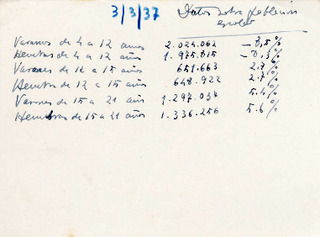 3/3/37
Datos sobre población
escolar
Varones de 4 a 12 años 2.024.062 — 8,5%
Hembras de 4 a 12 años 1.975.815 — 8,3%
Varones de 12 a 15 años 651.663 2.7%
Hembras de 12 a 15 años 648.922 2.7%
Varones de 15 a 21 años 1.297.034 5.4%
Hembras de 15 a 21 años 1.336.256 5.6%